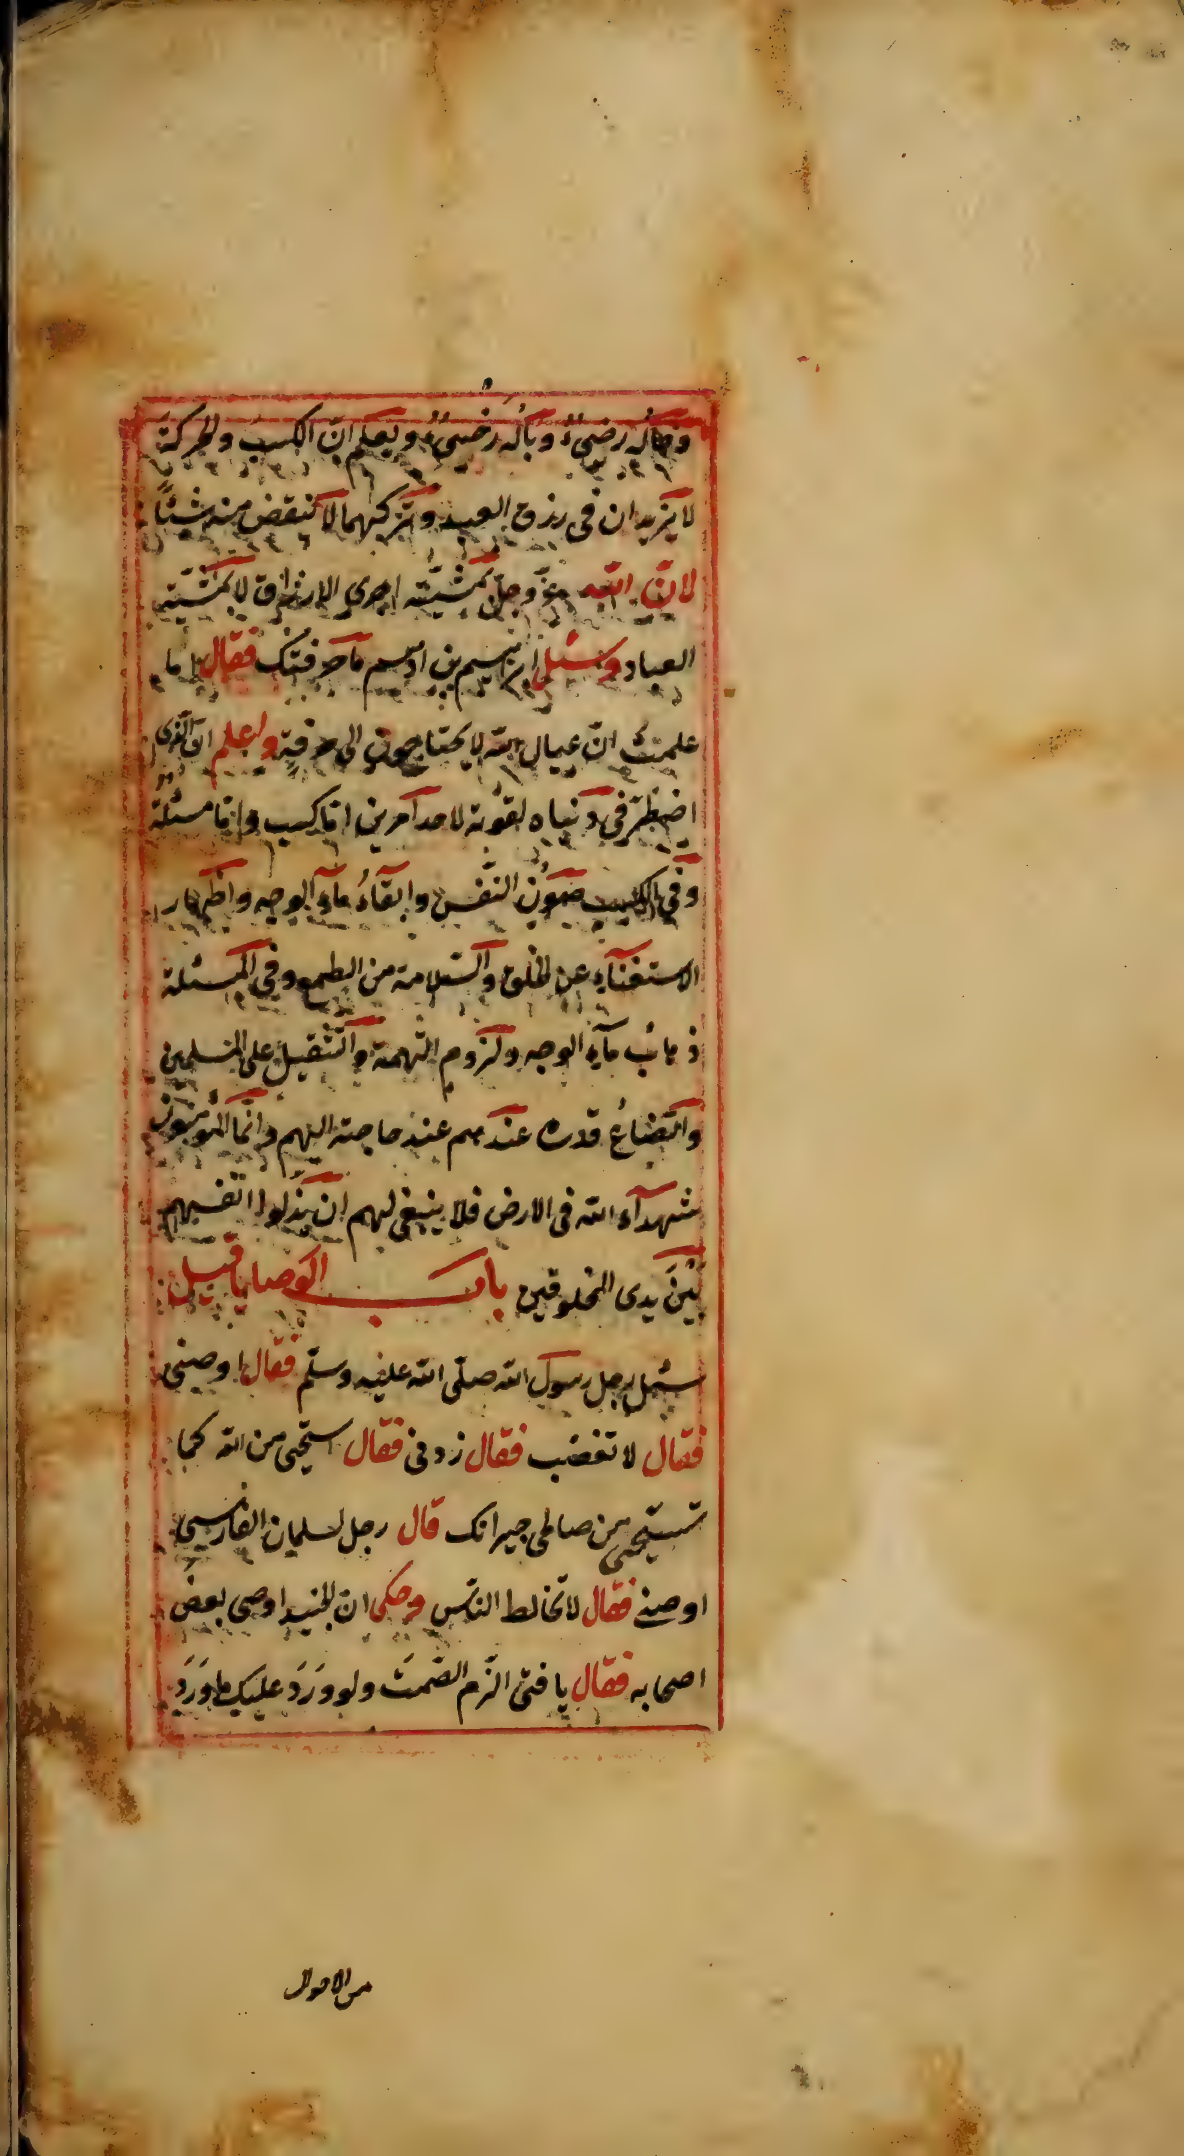 وحاله رضىّ وباله رخىّ ويعلم انّ الكسب والحركة
لا يزيدان فى رزق العبد وتركهما لا تنقض منه شيئًا
لانّ الله عزّ وجلّ بمشيّته اجرى الارزاق لا بمشيّته
العباد وسئل ابرهيم بن ادهم ما حرفتك فقال اما
علمت انّ عيال الله لا يحتاجون الى حرفة واعلم انّ الذى
اضطرّ فى دنياه لقوته لاحد آمرين امّا كسب وامّا مسئلة
وفى الكسب صون النّفس وابقآء مآء الوجه واظهار
الاستغنآء عن الخلق والسّلامة من الطمع وفى المسئلة
ذهاب مآء الوجه ولزوم التّهمة والتّثقيل على المسلمين
واتضاع قدره عندهم عند حاجته اليهم وانّما المؤمنون
شهدآء الله فى الارض فلا ينبغى لهم ان يذلوا انفسهم
بين يدى المخلوقين باب الوصايا قيل
سئل رجل رسول الله صلّى الله عليه وسلّم فقال اوصنى
فقال لا تغضب فقال زدنى فقال استحى من الله كما
تستحى من صالحى جيرانك قال رجل لسلمان الفارسى
اوصنى فقال لا تخالط النّاس وحكى انّ الجنيد اوصى بعض
اصحابه فقال يا فتى الزم الصّمت ولو ورد عليك ما ورد
من الاحوال